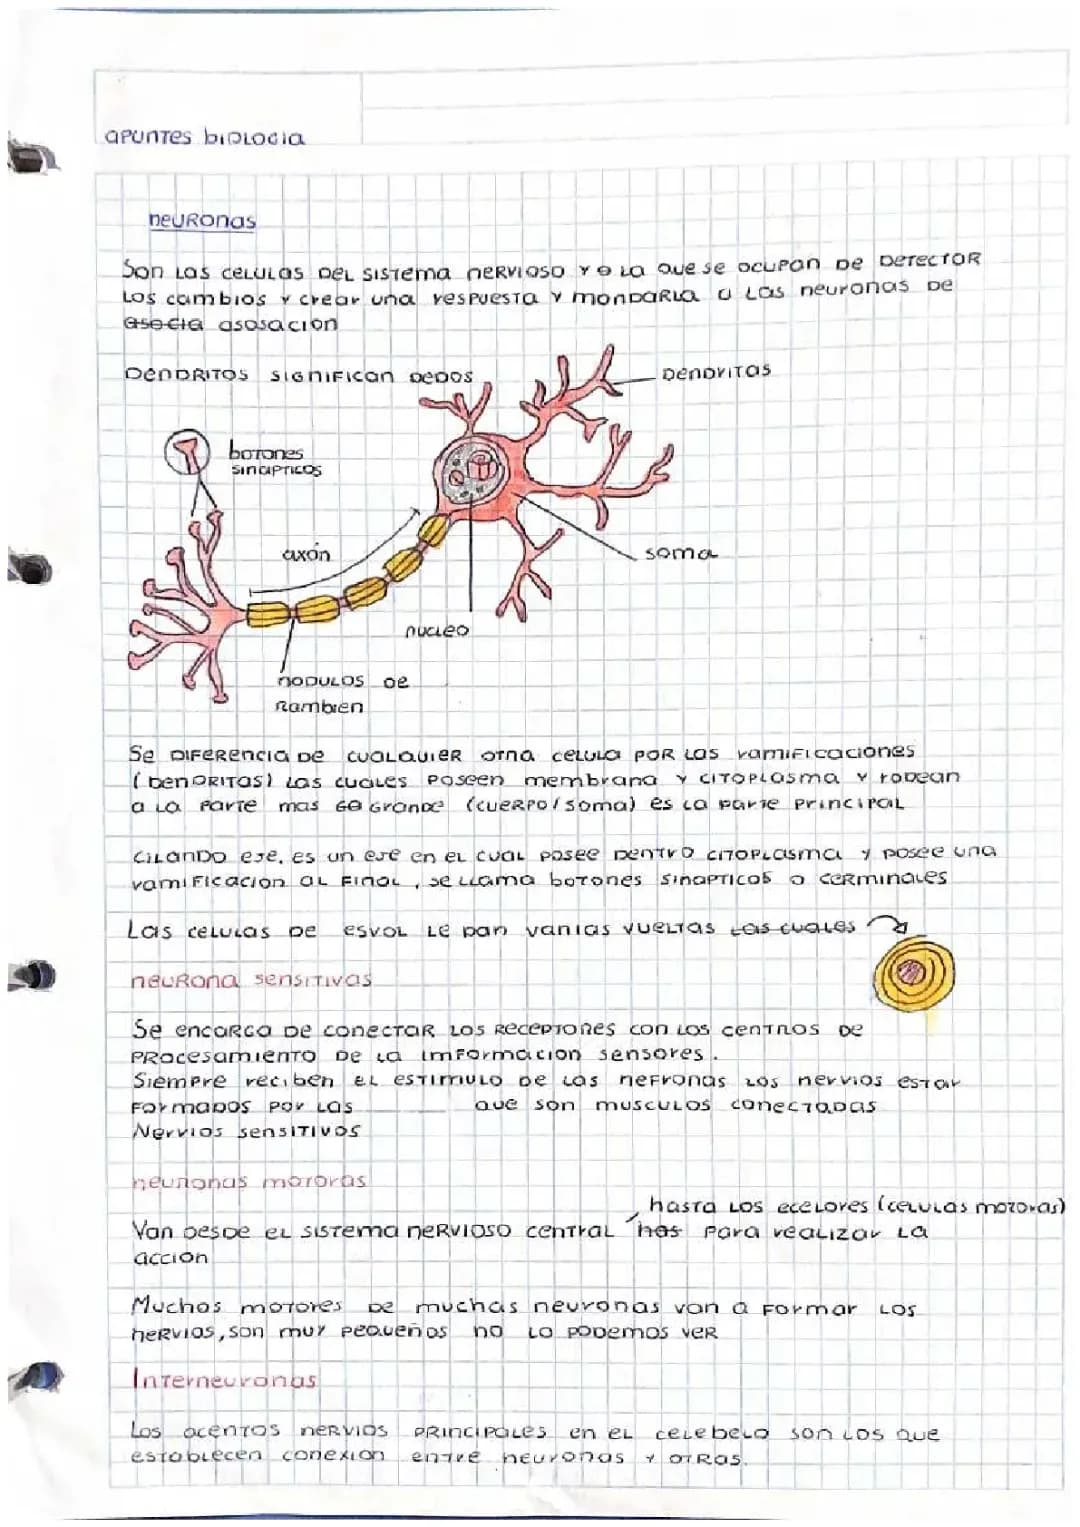 apuntes biologia
neuronas
Son las celulas del sistema nervioso y o la que se ocupan de detectar
los cambios y crear una respuesta y mondarla a las neuronas de
asocia asosacion
Dendritos significan dedos
Dendritas
botones
sinapticos
axón
soma
nucleo
nodulos de
Rambien
Se diferencia de cualquier otra celula por las ramificaciones
(Dendritas) las cuales poseen membrana y citoplasma y rodean
a la parte mas Ge Grande (cuerpo/soma) es la parte principal
Cilando eje, es un eje en el cual posee dentro citoplasma y posee una
ramificacion al final, se llama botones sinapticos o cerminales
Las celulas de esvol le dan varias vueltas las cuales
neurona sensitivas
Se encarga de conectar los receptores con los centros de
procesamiento de la imformacion sensores.
Siempre reciben el estimulo de las nefronas los nervios estar
formados por las que son musculos conectadas
Nervios sensitivos
neuronas motoras
hasta los ecelores (celulas motoras)
Van desde el sistema nervioso central has para realizar la
acción
Muchos motores de muchas neuronas van a formar los
nervios, son muy pequeños no lo podemos ver
Interneuronas
Los acentos nervios principales en el celebelo son los que
establecen conexion entre neuronas y otras.